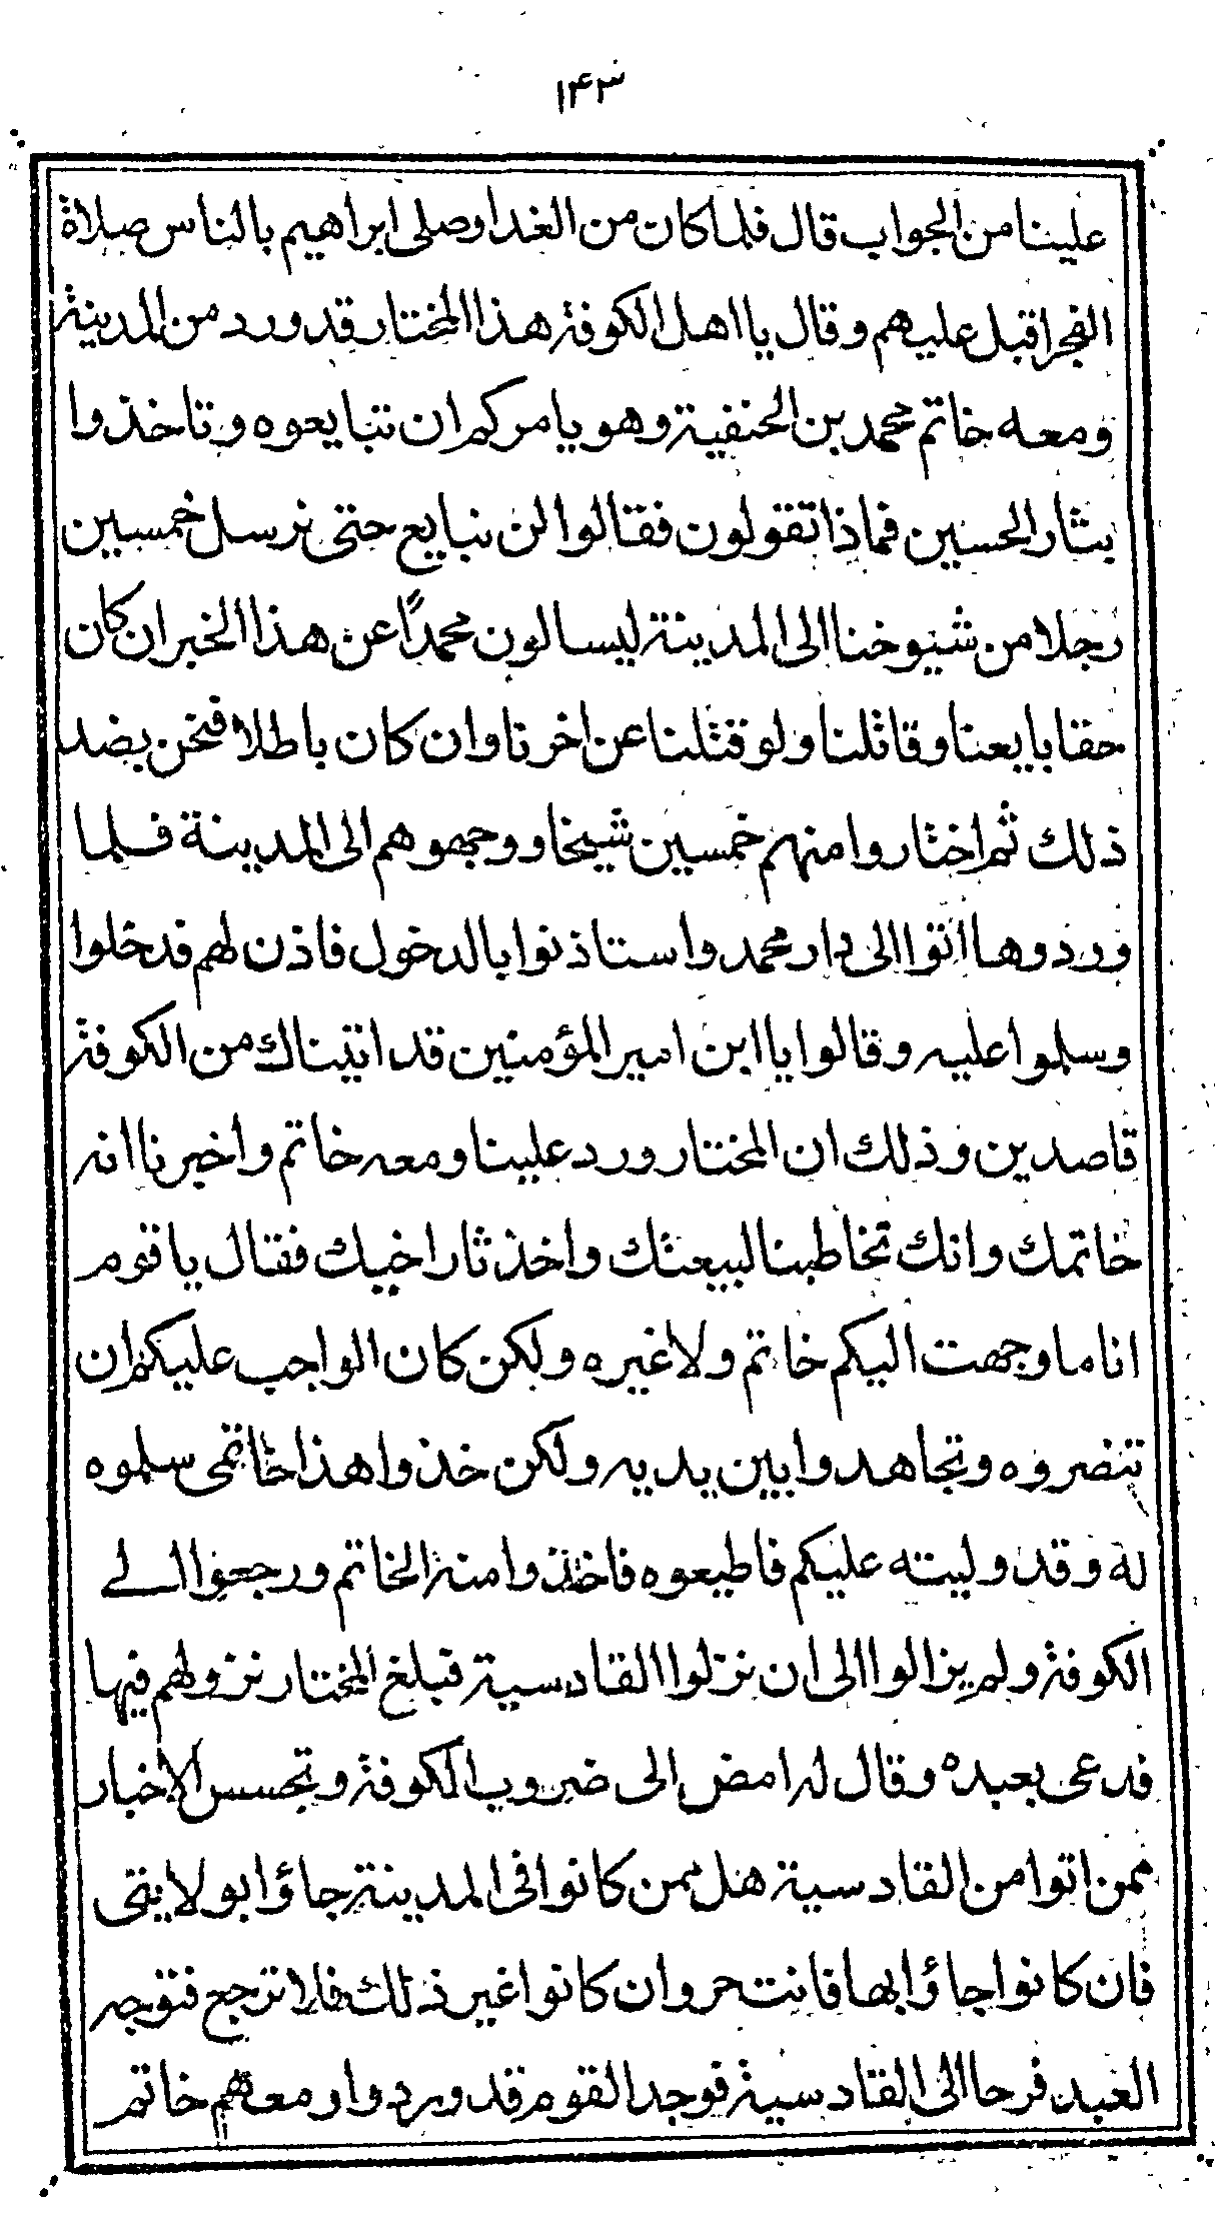 ١٤٣
علينا من الجواب قال فلما كان من الغد اوصلى ابراهيم بالناس صلاة
الفجر اقبل عليهم وقال يا اهل الكوفة هذا المختار قد ورد من المدينة
ومعه خاتم محمد بن الحنفية وهو يامركم ان تبايعوه وتاخذوا
بثار الحسين فماذا تقولون فقالوا لن نبايع حتى نرسل خمسين
رجلا من شيوخنا الى المدينة ليسالون محمدًا عن هذا الخبر ان كان
حقا بايعنا وقاتلنا ولو قتلنا عن اخرنا وان كان باطلا فنحن بضد
ذلك ثم اختاروا منهم خمسين شيخا ووجهوهم الى المدينة فلما
وردوها اتوا الى دار محمد واستاذنوا بالدخول فاذن لهم فدخلوا
وسلموا عليه وقالوا يا ابن امير المؤمنين قد اتيناك من الكوفة
قاصدين وذلك ان المختار ورد علينا ومعه خاتم واخبرنا انه
خاتمك وانك تخاطبنا لبيعتك واخذ ثار اخيك فقال يا قوم
انا ما وجهت اليكم خاتم ولا غيره ولكن كان الواجب عليكم ان
تنصروه وتجاهدوا بين يديه ولكن خذوا هذا خاتمى سلموه
له وقد وليته عليكم فاطيعوه فاخذوا منه الخاتم ورجعوا الے
الكوفة ولم يزالوا الى ان نزلوا القادسية فبلغ المختار نزولهم فيها
فدعى بعبده وقال له امض الى ضروب الكوفة وتجسس الاخبار
ممن اتوا من القادسية هل ممن كانوا فى المدينة جاؤا بولايتى
فان كانوا جاؤا بها فانت حر وان كانوا غير ذلك فلا ترجع فتوجه
العبد فرحا الى القادسية فوجد القوم قد وردوا ومعهم خاتم